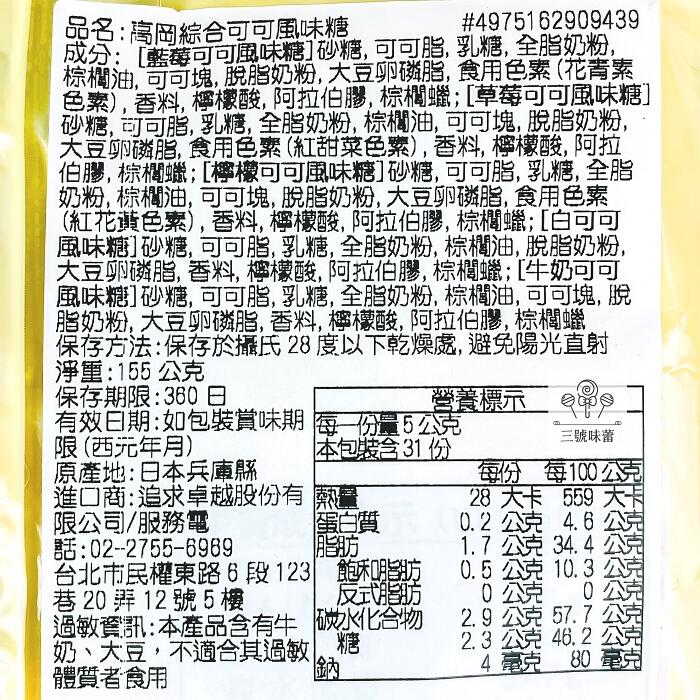 品名:高岡綜合可可風味糖 #4975162909439
成分: [藍莓可可風味糖]砂糖, 可可脂, 乳糖, 全脂奶粉,
棕櫚油, 可可塊, 脫脂奶粉, 大豆卵磷脂, 食用色素(花青素
色素), 香料, 檸檬酸, 阿拉伯膠, 棕櫚蠟; [草莓可可風味糖]
砂糖, 可可脂, 乳糖, 全脂奶粉, 棕櫚油, 可可塊, 脫脂奶粉,
大豆卵磷脂, 食用色素(紅甜菜色素), 香料, 檸檬酸, 阿拉
伯膠, 棕櫚蠟; [檸檬可可風味糖]砂糖, 可可脂, 乳糖, 全脂
奶粉, 棕櫚油, 可可塊, 脫脂奶粉, 大豆卵磷脂, 食用色素
(紅花黃色素), 香料, 檸檬酸, 阿拉伯膠, 棕櫚蠟; [白可可
風味糖]砂糖, 可可脂, 乳糖, 全脂奶粉, 棕櫚油, 脫脂奶粉,
大豆卵磷脂, 香料, 檸檬酸, 阿拉伯膠, 棕櫚蠟; [牛奶可可
風味糖]砂糖, 可可脂, 乳糖, 全脂奶粉, 棕櫚油, 可可塊, 脫
脂奶粉, 大豆卵磷脂, 香料, 檸檬酸, 阿拉伯膠, 棕櫚蠟
保存方法:保存於攝氏 28 度以下乾燥處, 避免陽光直射
淨重:155 公克
保存期限:360 日
有效日期:如包裝賞味期
限(西元年月)
原產地:日本兵庫縣
進口商:追求卓越股份有
限公司/服務電
話:02-2755-6989
台北市民權東路 6 段 123
巷 20 弄 12 號 5 樓
過敏資訊:本產品含有牛
奶、大豆, 不適合其過敏
體質者食用
營養標示
每一份量 5 公克
本包裝含 31 份
每份 每100 公克
熱量 28 大卡 559 大卡
蛋白質 0.2 公克 4.6 公克
脂肪 1.7 公克 34.4 公克
飽和脂肪 0.5 公克 10.3 公克
反式脂肪 0 公克 0 公克
碳水化合物 2.9 公克 57.7 公克
糖 2.3 公克 46.2 公克
鈉 4 毫克 80 毫克
三號味蕾